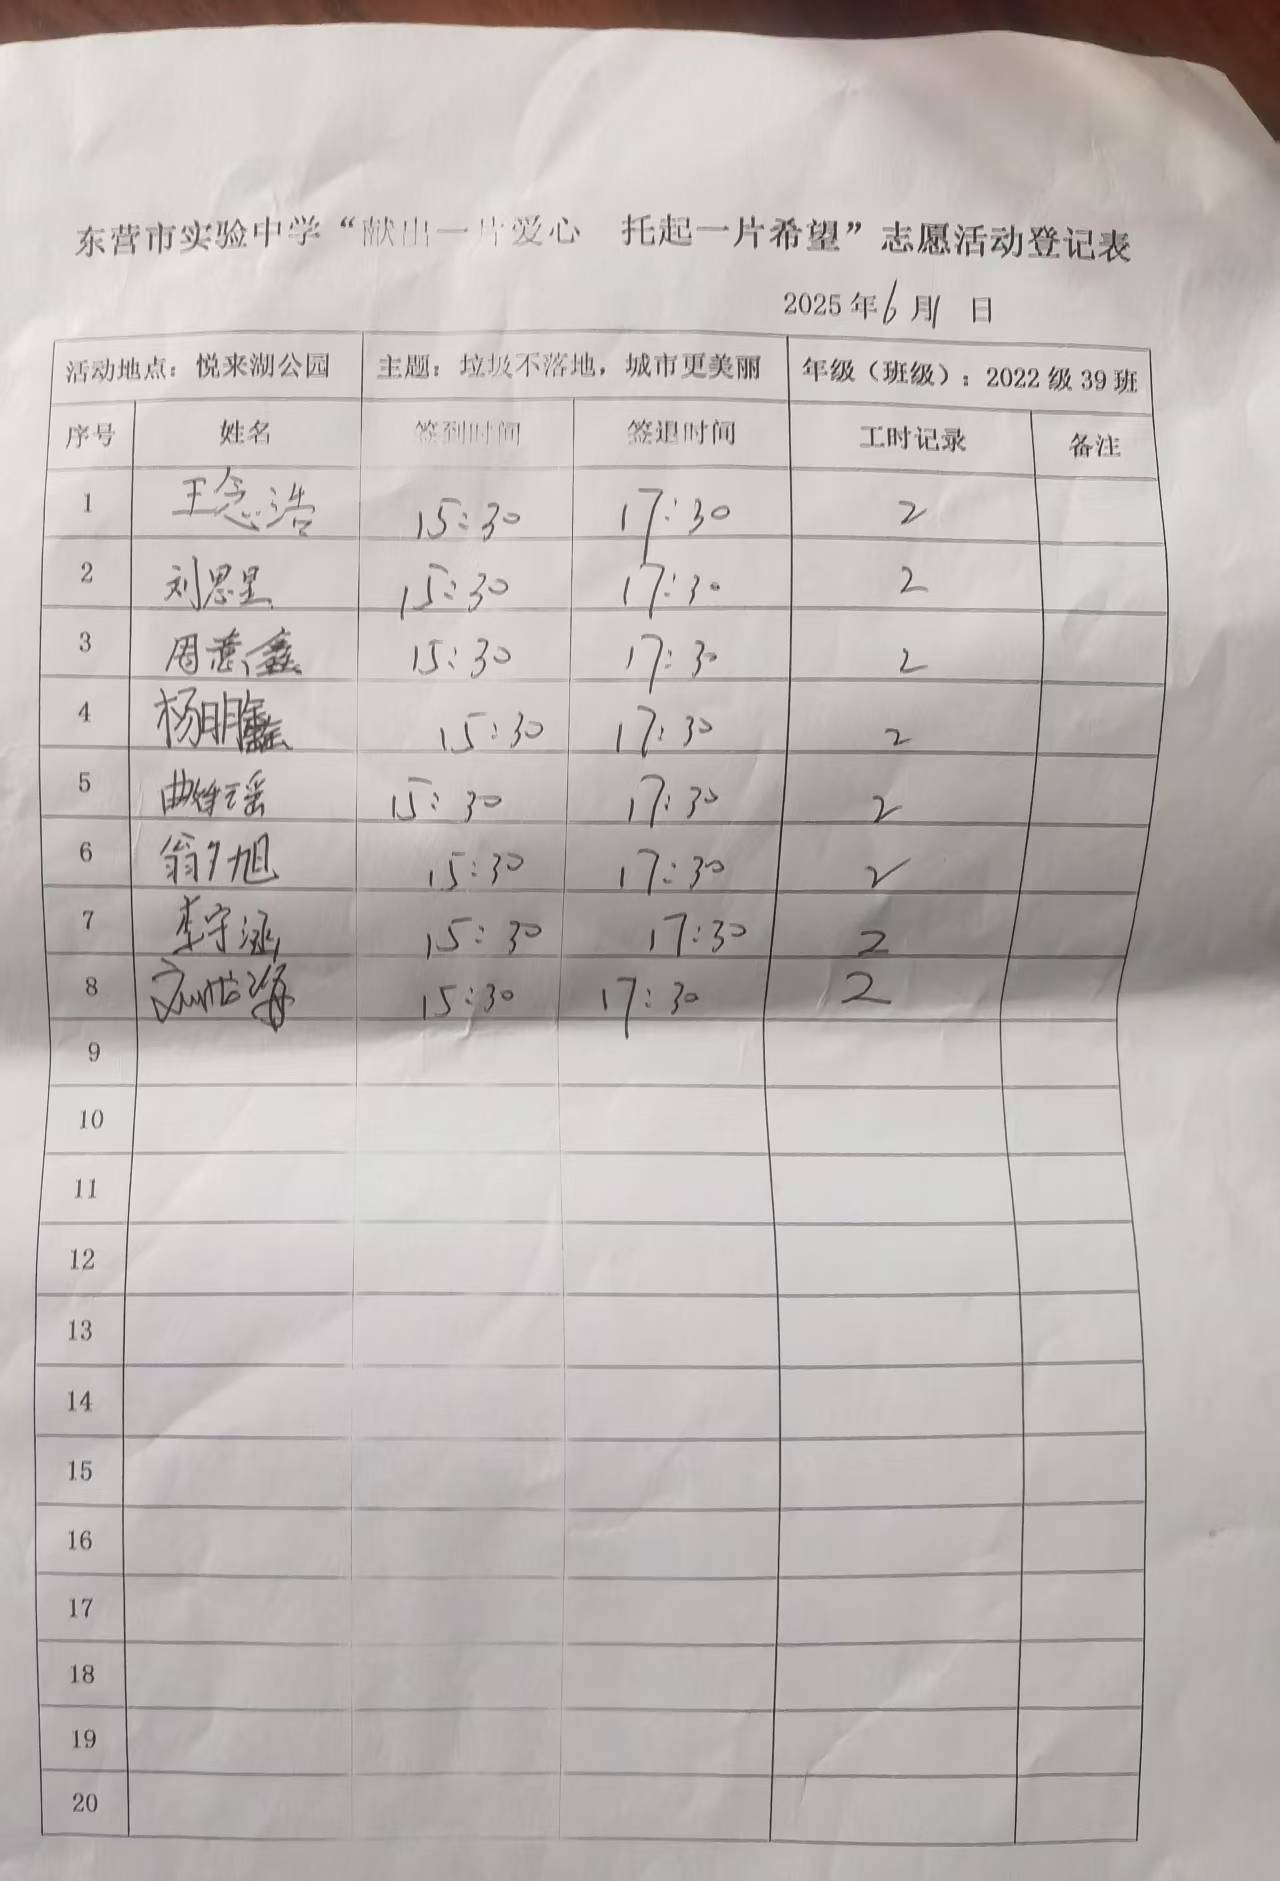 东营市实验中学“献出一片爱心 托起一片希望”志愿活动登记表
2025年6月1日
活动地点：悦来湖公园 主题：垃圾不落地，城市更美丽 年级（班级）：2022级39班
序号 姓名 签到时间 签退时间 工时记录 备注
1 王念浩 15:30 17:30 2
2 刘思星 15:30 17:30 2
3 周意鑫 15:30 17:30 2
4 杨明鑫 15:30 17:30 2
5 曲 瑶 15:30 17:30 2
6 翁夕旭 15:30 17:30 2
7 李宇涵 15:30 17:30 2
8 15:30 17:30 2
9
10
11
12
13
14
15
16
17
18
19
20